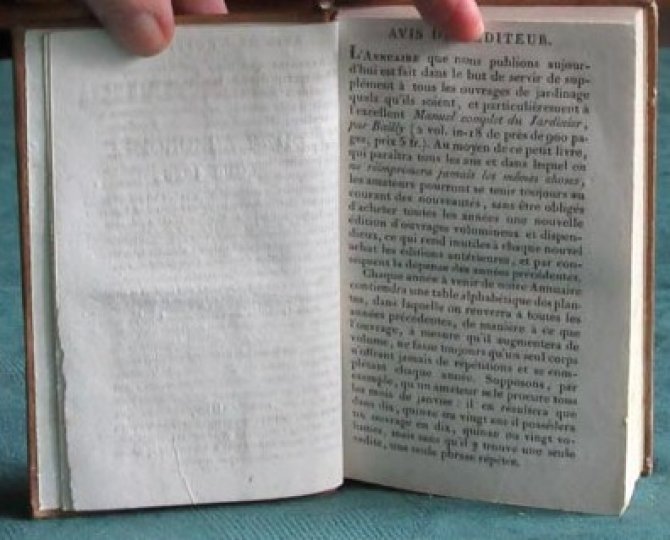 AVIS D  DITEUR.
L'ANNUAIRE que nous publions aujour-
d'hui est fait dans le but de servir de sup-
plément à tous les ouvrages de jardinage
quels qu'ils soient, et particulièrement à
l'excellent Manuel complet du Jardinier,
par Bailly (2 vol. in-18 de près de 960 pa-
ges, prix 5 fr.). Au moyen de ce petit livre,
qui paraîtra tous les ans et dans lequel on
ne réimprimera jamais les mêmes choses,
les amateurs pourront se tenir toujours au
courant des nouveautés, sans être obligés
d'acheter toutes les années une nouvelle
édition d'ouvrages volumineux et dispen-
dieux, ce qui rend inutiles à chaque nouvel
achat les éditions antérieures, et par con-
séquent la dépense des années précédentes.
Chaque année à venir de notre Annuaire
contiendra une table alphabétique des plan-
tes, dans laquelle on renverra à toutes les
années précédentes, de manière à ce que
l'ouvrage, à mesure qu'il augmentera de
volume, ne fasse toujours qu'un seul corps
n'offrant jamais de répétitions et se com-
plétant chaque année. Supposons, par
exemple, qu'un amateur se le procure tous
les mois de janvier: il en résultera que
dans dix, quinze ou vingt ans il possédera
un ouvrage en dix, quinze ou vingt vo-
lumes, mais sans qu'il y trouve une seule
redite, une seule phrase répétée.